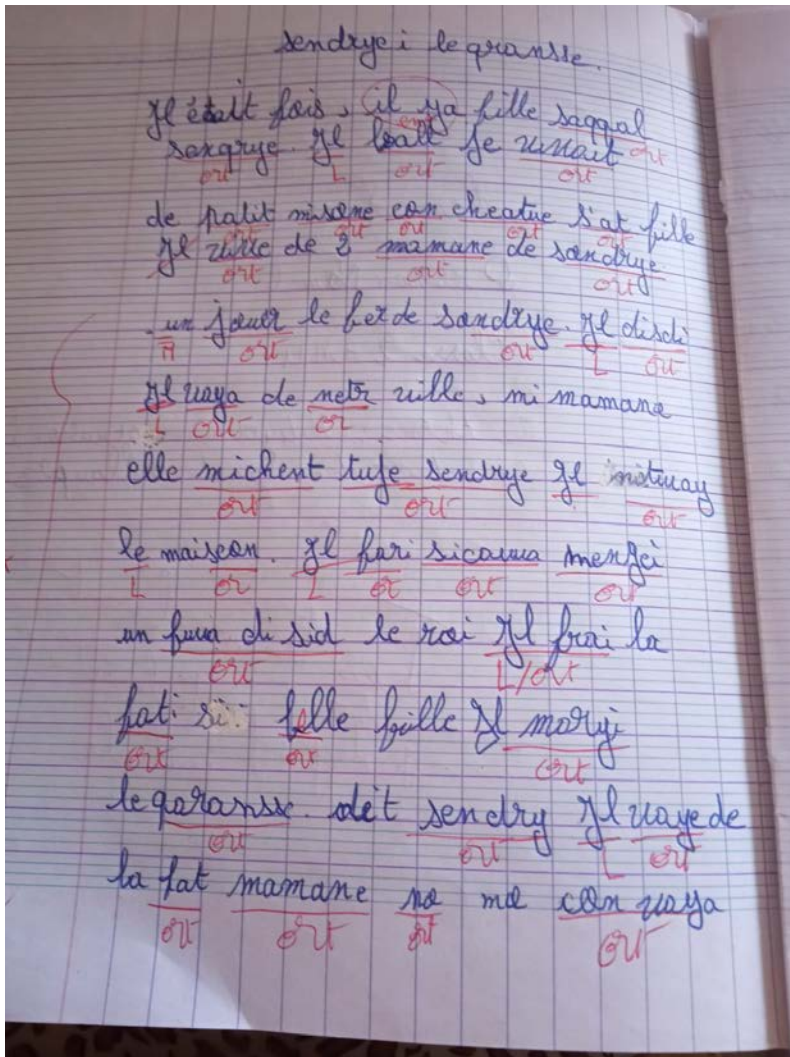 sendrye i le gransse.
Il était fois, il ya fille saqqal
ent
sangrye. Il ball je vivait ort
ort L ort ort
de patit misone con cheatue s'at fille
ort ort ort ort ort
Il vivie de 2 mamane de sandrye
ort ort ort
un jouer le ber de sandrye. Il disdi
A ort ort L ort
Il vaya de netr ville, mi mamana
L ort or
elle michent tuje sendrye Il
ort ort ort
le maiscon. Il fari sicauva menfei
L or L or ort ort
un fuva di sid le roi Il frai la
ort L/ort
fati si felle fille Il maryi
ort or ort
le garansse. dét sendry Il vaye de
ort ort L ort
la fat mamane na ma con vaya
ort ort ort ort